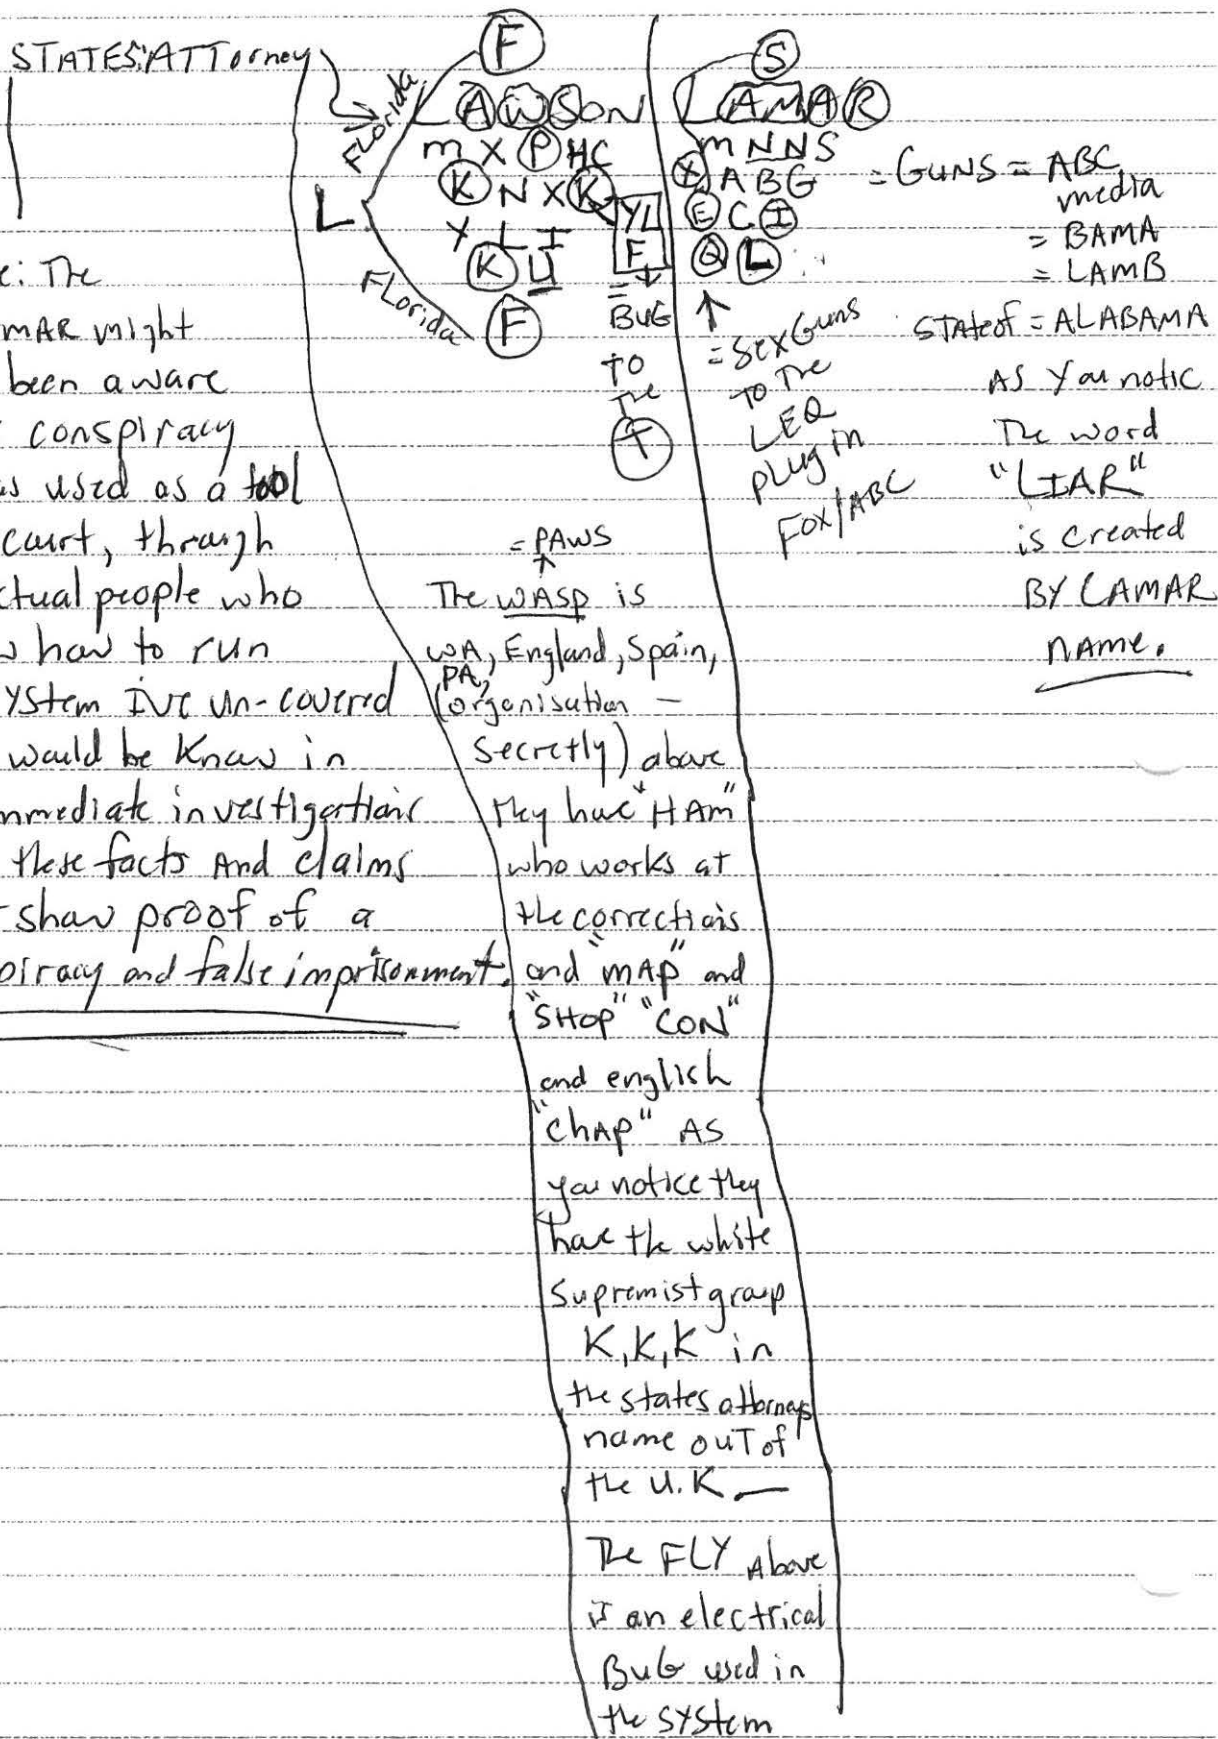 STATES ATTorney
e: The
mAR might
been aware
conspiracy
s used as a tool
court, through
ctual people who
how to run
YStem IVE un-covered
would be Know in
mmediate investigations
these facts And claims
show proof of a
piracy and false imprisonment.
F
Florida
LAWSON
m X P HC
K N X K
L
Y L I
K U
Florida
F
YL
F
=
BUG
TO
The
T
= PAWS
The WASP is
WA, England, Spain,
PA,
(organisation —
Secretly) above
they have "HAm"
who works at
the corrections
and "mAP" and
"SHop" "CON"
and english
"ChAP" AS
you notice they
have the white
Supremist group
K,K,K in
the states attorneys
name ouT of
the U.K —
The FLY Above
is an electrical
BUG used in
the SYStem
S
LAMAR
m N N S
X A B G
E C I
Q L
= SEX Guns
TO The
LEQ
plug in
FOX/ABC
= GUNS = ABC
media
= BAMA
= LAMB
STATE of = ALABAMA
AS You notic
The word
"LIAR"
is created
BY LAMAR
NAME.